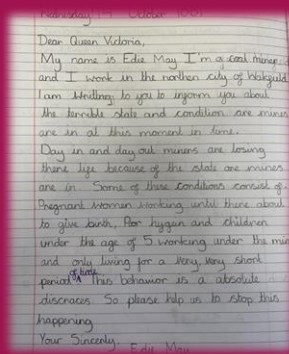 Wednesday 1st October
Dear Queen Victoria,
My name is Edie May I'm a coal miner
and I work in the northen city of Wakefield
I am writing to you to ingorm you about
the terrible state and condition are mines
are in at this moment in time.
Day in and day out miners are losing
there lige because of the state are mines
are in. Some of these conditions consist of.
Pregnant women working until there about
to give birth, Poor hygien and children
under the age of 5. working under the min
and only living for a very, very short
period of time This behavior is a absolute
discraces. So please help us to stop this
happening
Your Sincerly.
Edie May